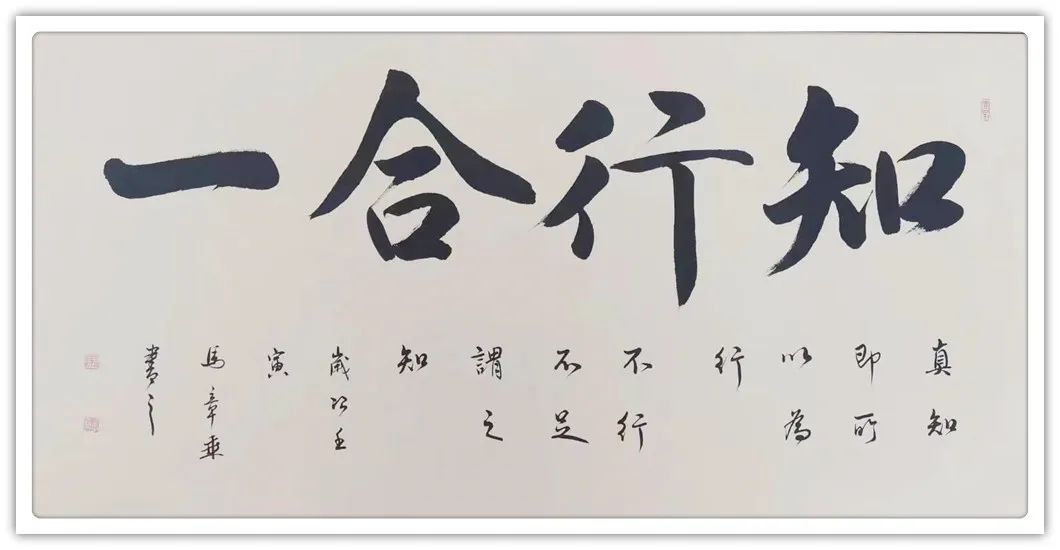 知行合一
真知
即所
以為
行
不行
不足
謂之
知
歲次壬
寅
馬章乘
書之